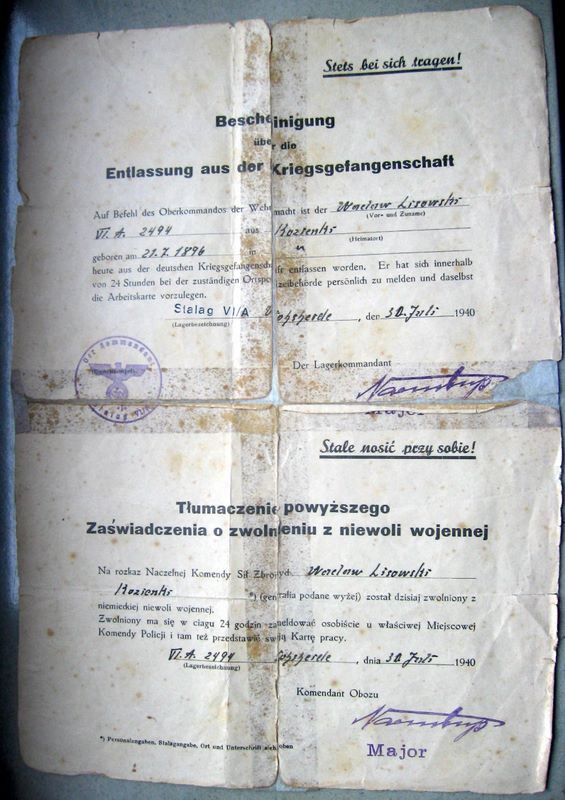 Stets bei sich tragen!
Bescheinigung
über die
Entlassung aus der Kriegsgefangenschaft
Auf Befehl des Oberkommandos der Wehrmacht ist der Wacław Lisowski
(Vor- und Zuname)
VI.A. 2494 aus Kozienki
(Heimatort)
geboren am 21.7.1896 in "
heute aus der deutschen Kriegsgefangenschaft entlassen worden. Er hat sich innerhalb
von 24 Stunden bei der zuständigen Ortspolizeibehörde persönlich zu melden und daselbst
die Arbeitskarte vorzulegen.
Stalag VI/A , den 30. Juli 1940
(Lagerbezeichnung)
Der Lagerkommandant
(Dienststempel)
Major
Stale nosić przy sobie!
Tłumaczenie powyższego
Zaświadczenia o zwolnieniu z niewoli wojennej
Na rozkaz Naczelnej Komendy Sił Zbrojnych, Wacław Lisowski
Kozienki *) (generalia podane wyżej) został dzisiaj zwolniony z
niemieckiej niewoli wojennej.
Zwolniony ma się w ciągu 24 godzin zameldować osobiście u właściwej Miejscowej
Komendy Policji i tam też przedstawić swoją Kartę pracy.
VI.A. 2494 , dnia 30. Juli 1940
(Lagerbezeichnung)
Komendant Obozu
Major
*) Personalangaben, Stalagangabe, Ort und Unterschrift siehe oben